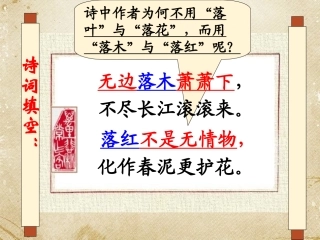 诗中作者为何不用“落
叶”与“落花”，而用
“落木”与“落红”呢？
诗词填空：
无边落木萧萧下，
不尽长江滚滚来。
落红不是无情物，
化作春泥更护花。